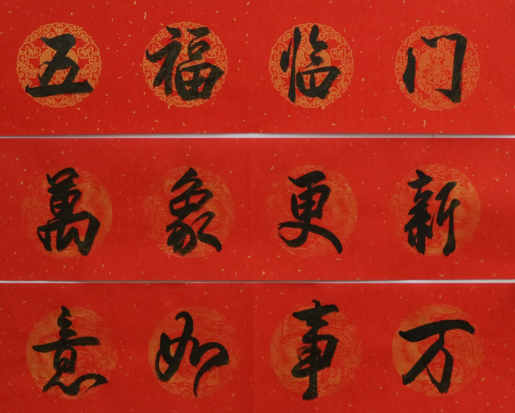 五福临门
萬象更新
万事如意